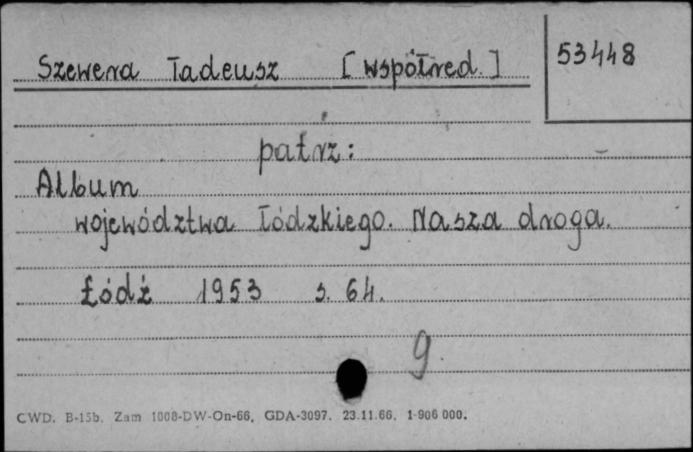 Szewera Tadeusz [współred.] 53448
patrz:
Album
województwa łódzkiego. Nasza droga.
Łódź 1953 s. 64.
9
CWD. B-15b. Zam 1008-DW-On-66. GDA-3097. 23.11.66. 1-906 000.